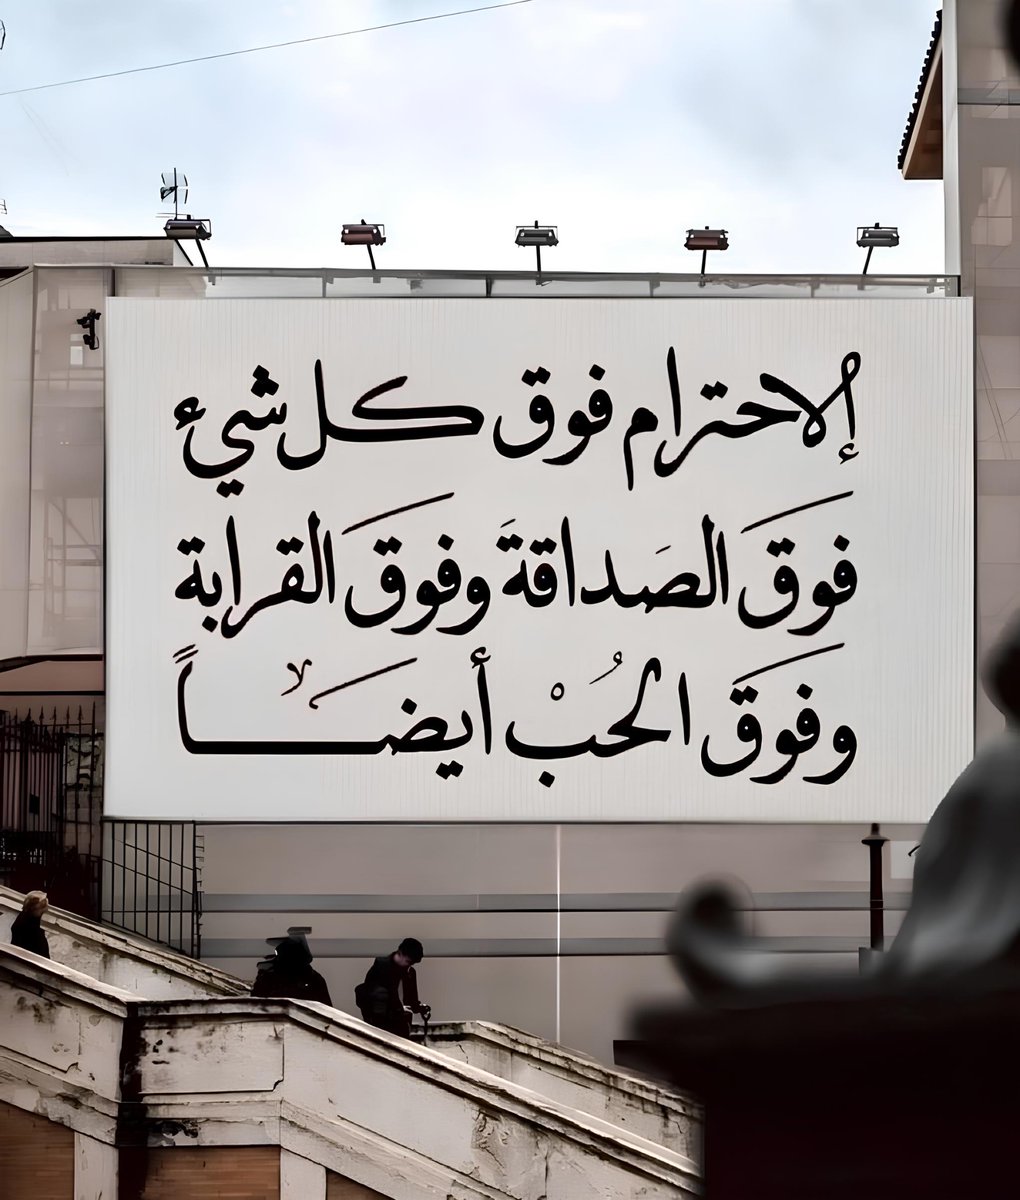 الإحترام فوق كل شيء
فوَق الصَداقةَ وفوقَ القرابة
وفوقَ الحُبْ أيضاً